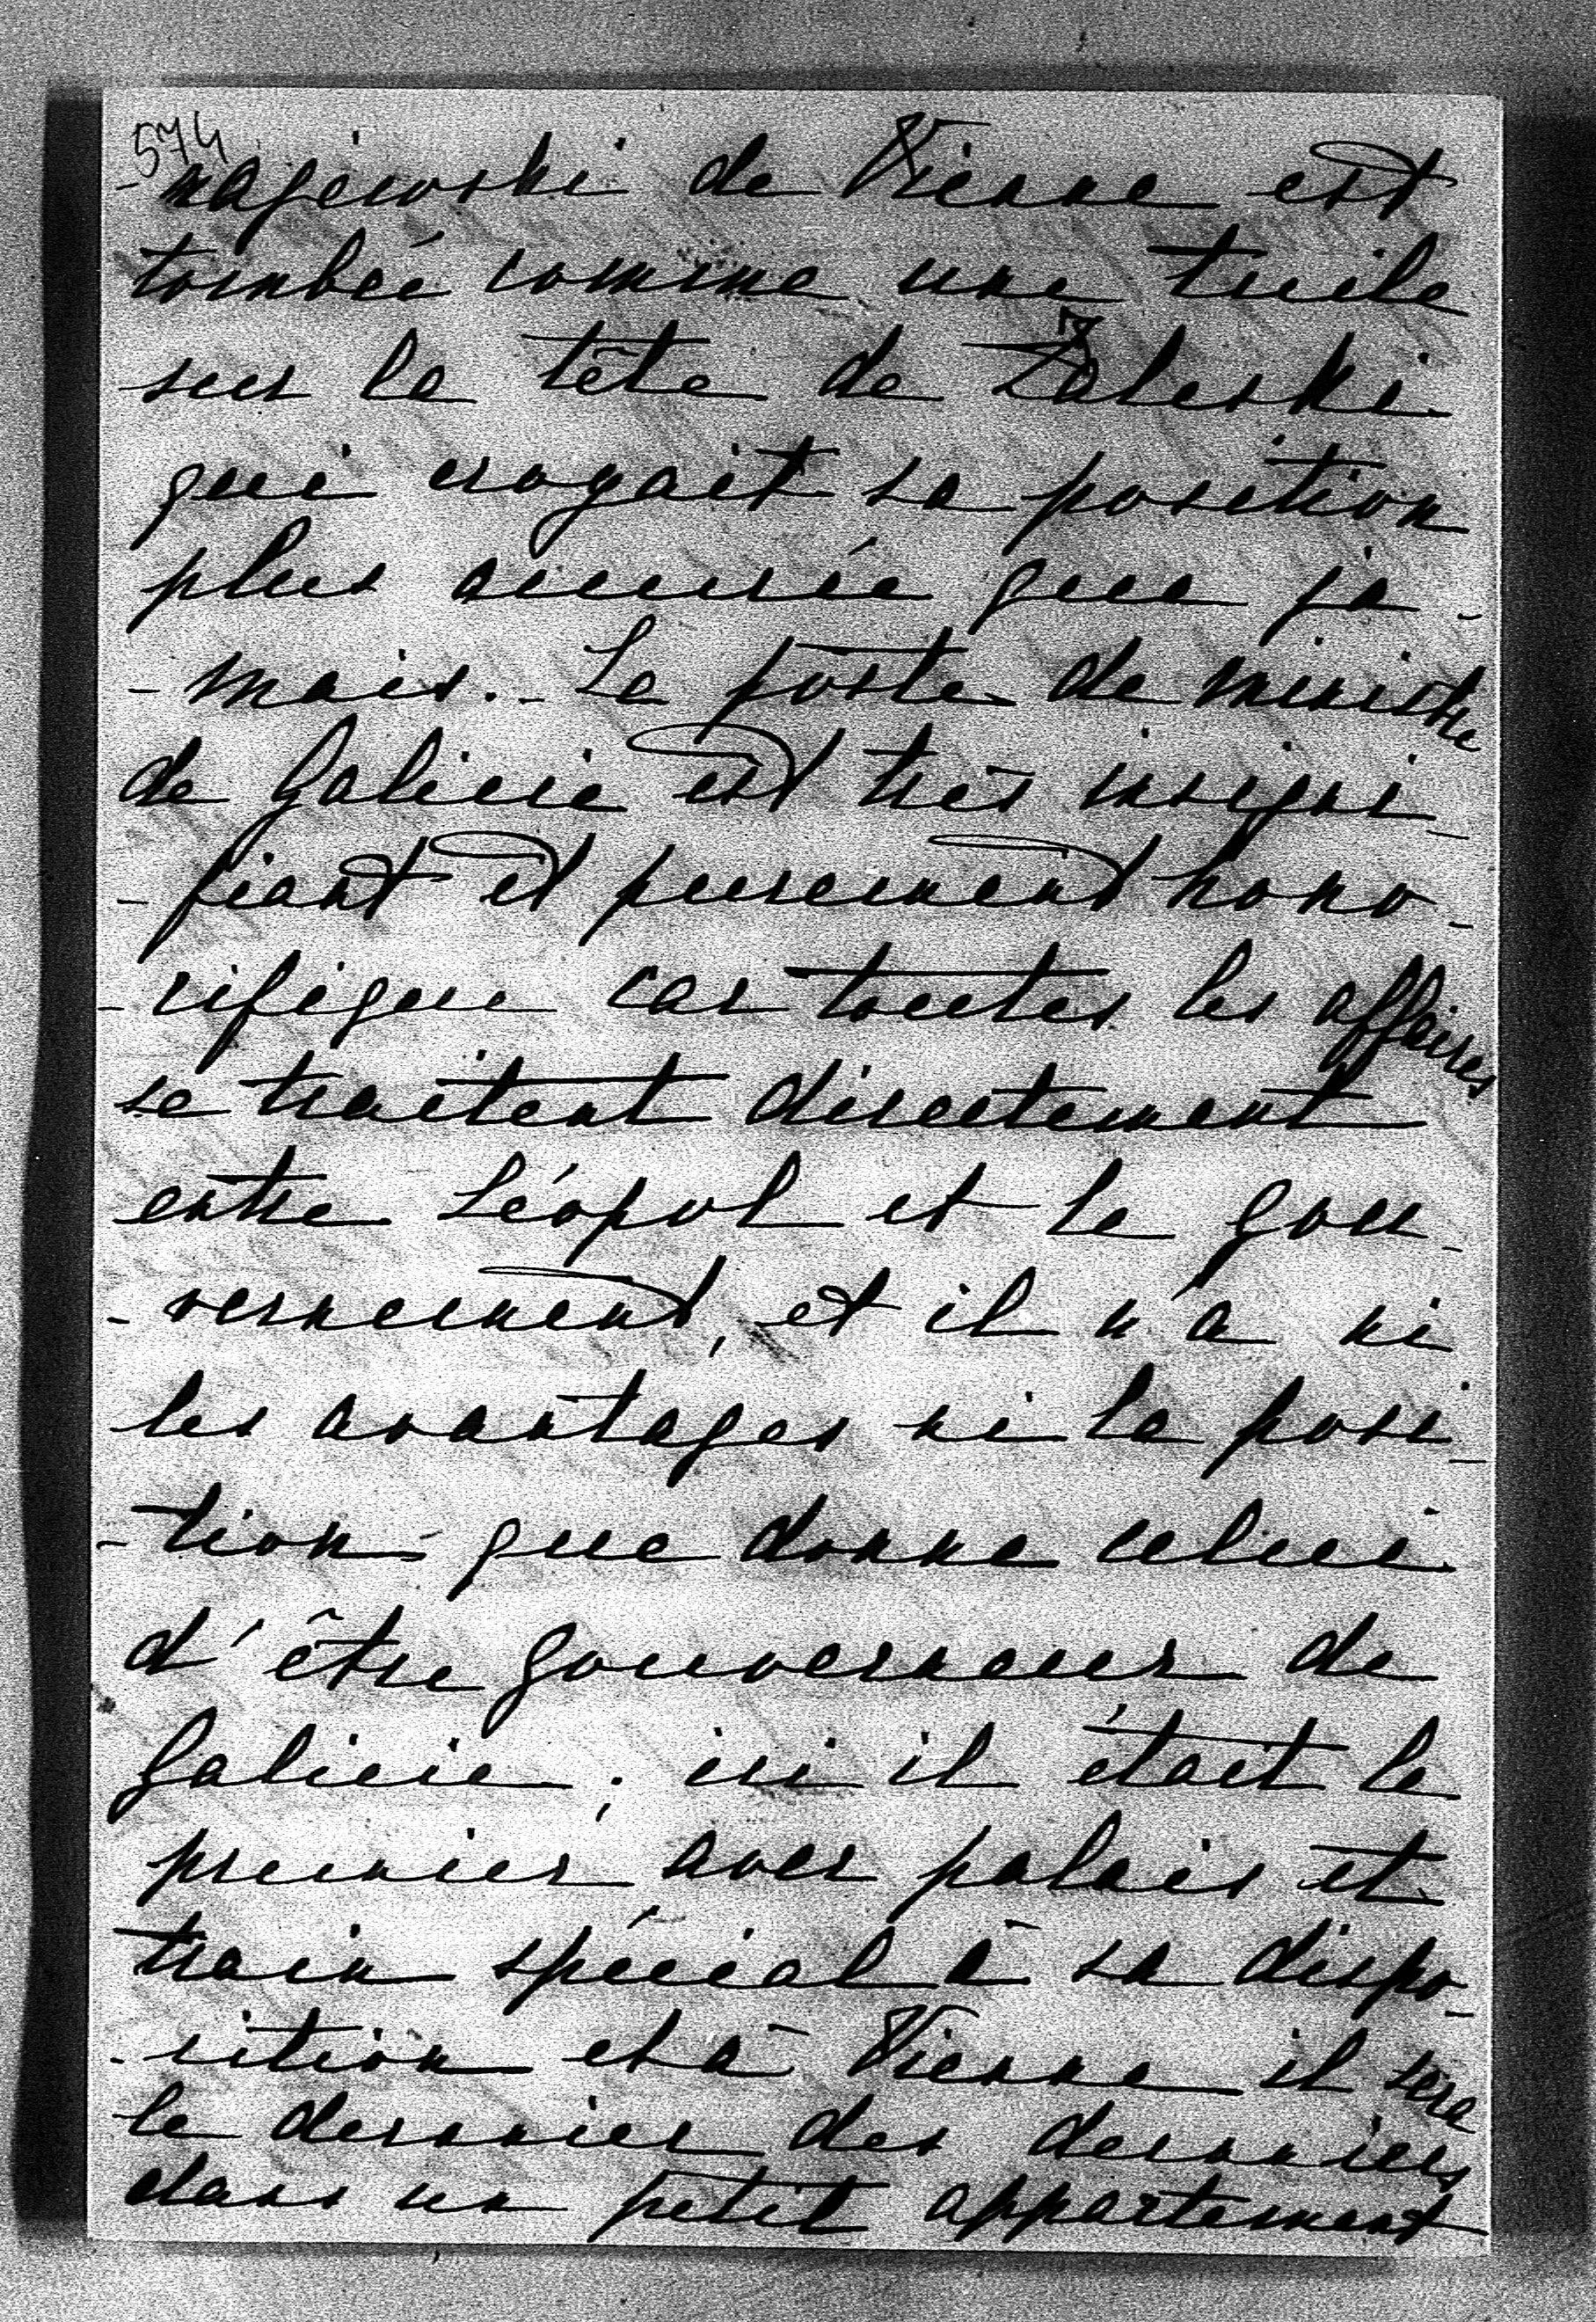 574
-najewski de Vienne est
tombée comme une tuile
sur la tête de Zaleski
qui croyait sa position
plus assurée que ja-
-mais. - Le poste de ministre
de Galicie est très insigni-
-fiant et purement hono-
-rifique car toutes les affaires
se traitent directement
entre Léopol et le gou-
-vernement, et il n'a ni
les avantages ni la posi-
-tion que donne celui
d'être gouverneur de
Galicie; ici il était le
premier avec palais et
train spécial à sa dispo-
-sition et à Vienne il sera
le dernier des derniers
dans un petit appartement